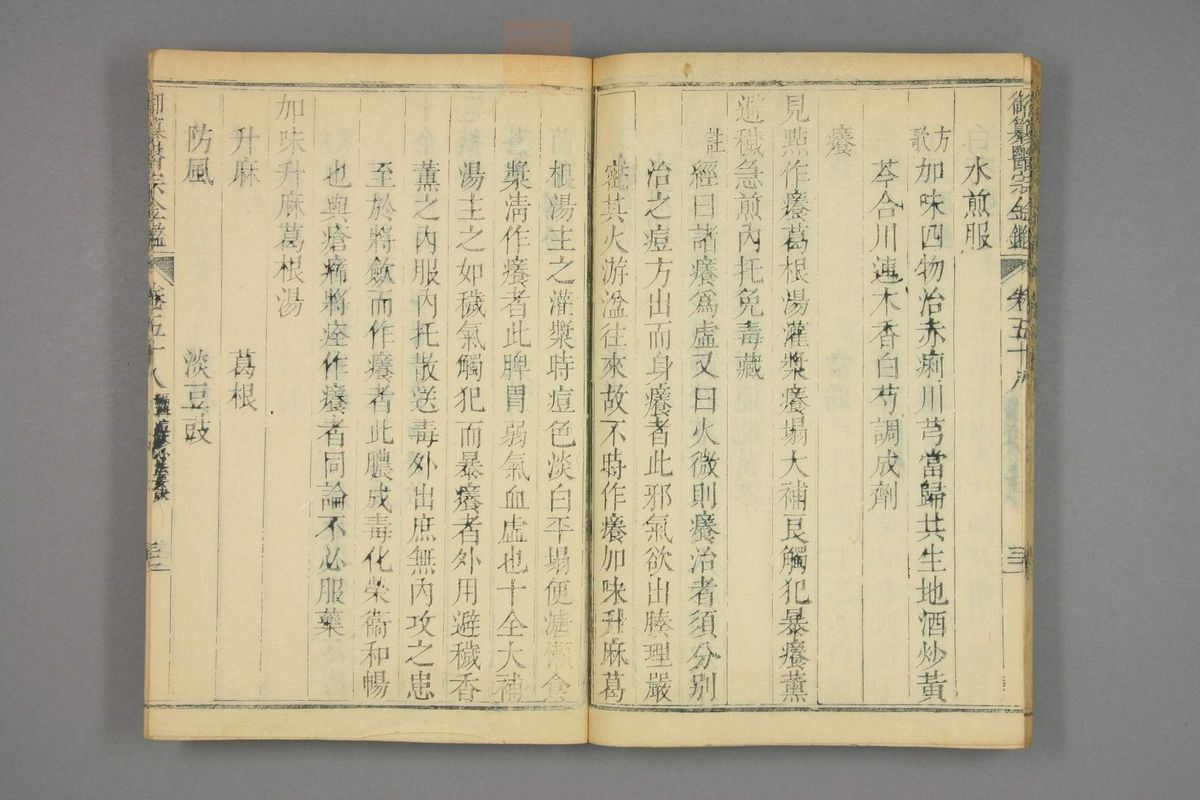 御纂醫宗金鑑
卷五十八
三二
水煎服
方歌
加味四物治赤痢川芎當歸共生地酒炒黃
芩合川連木香白芍調成劑
癢
見點作癢葛根湯灌漿癢塌大補良觸犯暴癢薰
避穢急煎內托免毒藏
註
經曰諸癢爲虛又曰火微則癢治者須分別
治之痘方出而身癢者此邪氣欲出腠理嚴
密其火游溢往來故不時作癢加味升麻葛
根湯主之灌漿時痘色淡白平塌便溏懶食
漿清作癢者此脾胃弱氣血虛也十全大補
湯主之如穢氣觸犯而暴癢者外用避穢香
薰之內服內托散送毒外出庶無內攻之患
至於將斂而作癢者此膿成毒化榮衞和暢
也與瘡瘍將痊作癢者同論不必服藥
加味升麻葛根湯
升麻
葛根
防風
淡豆豉
御纂醫宗金鑑
卷五十八